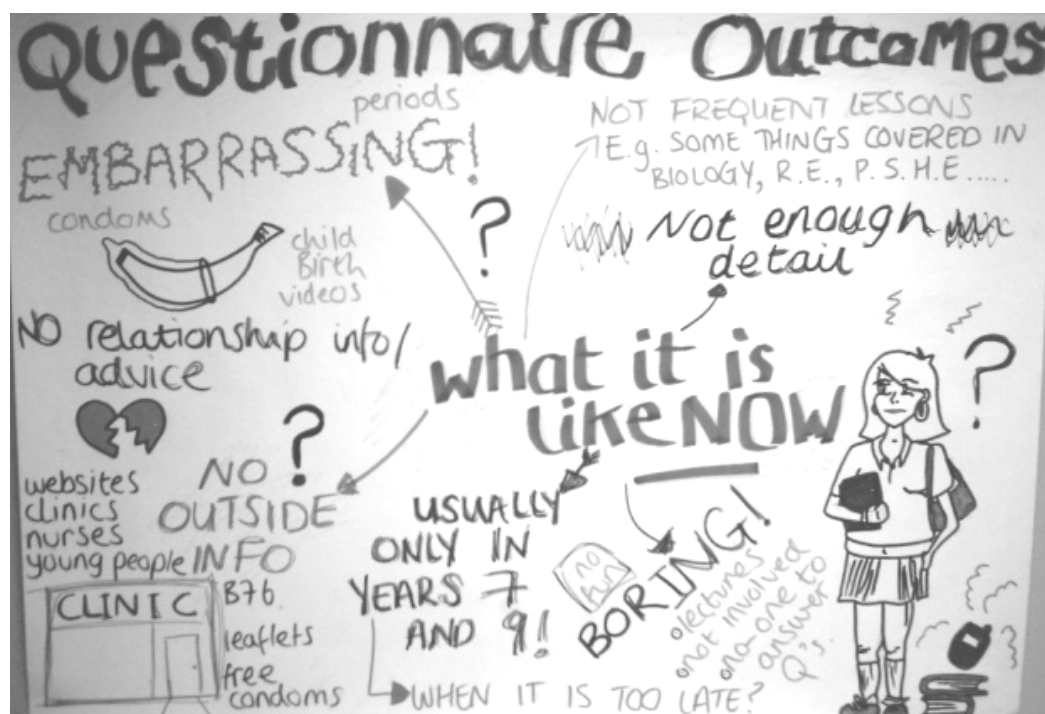 Questionnaire Outcomes
periods
EMBARRASSING!
condoms
child
Birth
videos
NOT FREQUENT LESSONS
E.g. SOME THINGS COVERED IN
BIOLOGY, R.E., P.S.H.E.....
?
Not enough
detail
NO relationship info/
advice
what it is
like NOW
?
?
websites
clinics
nurses
young people
NO
OUTSIDE
INFO
CLINIC
B76
leaflets
free
condoms
USUALLY
ONLY IN
YEARS 7
AND 9!
WHEN IT IS TOO LATE?
no
fun
BORING!
lectures
not involved
no-one to
answer
Q's.